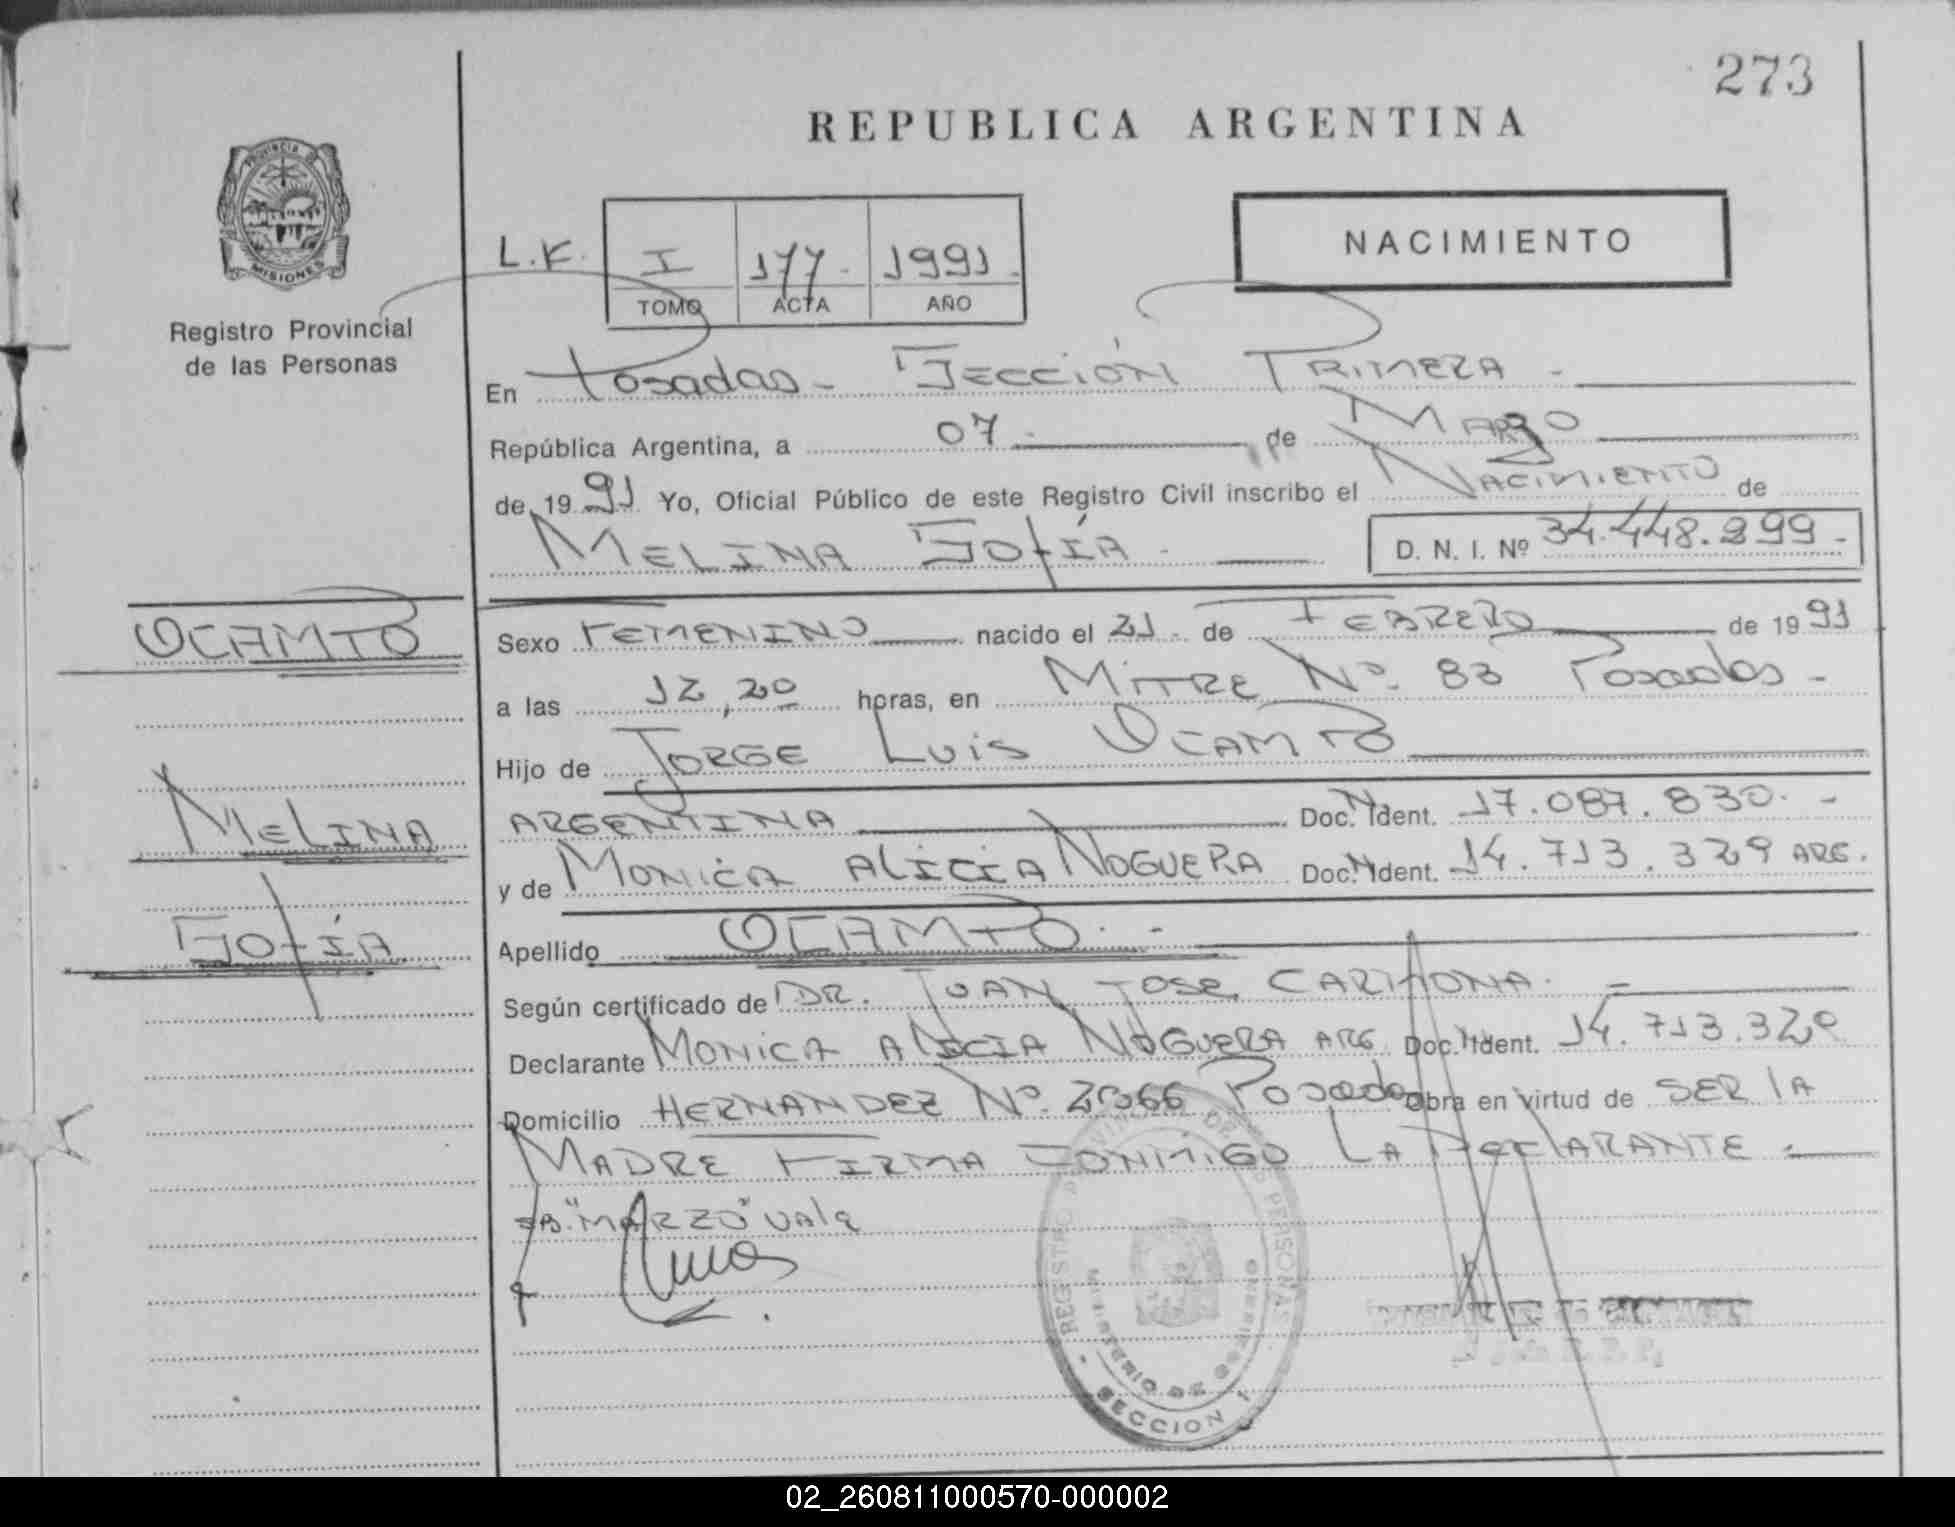 273
REPUBLICA ARGENTINA
PROVINCIA DE
MISIONES
Registro Provincial
de las Personas
NACIMIENTO
L.F. I 177.- 1991.
TOMO ACTA AÑO
En Posadas - SECCIÓN PRIMERA -
República Argentina, a 07 - de MARZO
de 1991 Yo, Oficial Público de este Registro Civil inscribo el NACIMIENTO de
MELINA SOFÍA -
D. N. I. Nº 34.448.299 -
OCAMPO
Sexo FEMENINO nacido el 21 - de FEBRERO de 1991
a las 12,20 horas, en MITRE Nº 83 Posadas -
Hijo de JORGE LUIS OCAMPO
MELINA
ARGENTINA Doc. N Ident. 17.087.830. -
y de MONICA ALICIA NOGUERA Doc. N Ident. 14.713.329 ARG.
SOFÍA
Apellido OCAMPO. -
Según certificado de DR. JUAN JOSE CARMONA. -
Declarante MONICA ALICIA NOGUERA ARG. Doc. N Ident. 14.713.329
Domicilio HERNANDEZ Nº 2366 Posadas Obra en virtud de SER LA
MADRE FIRMA CONMIGO LA DECLARANTE -
"MARZO" Vale
REGISTRO PROVINCIAL DE LAS PERSONAS
MINISTERIO DE GOBIERNO
SECCION 1
02_260811000570-000002